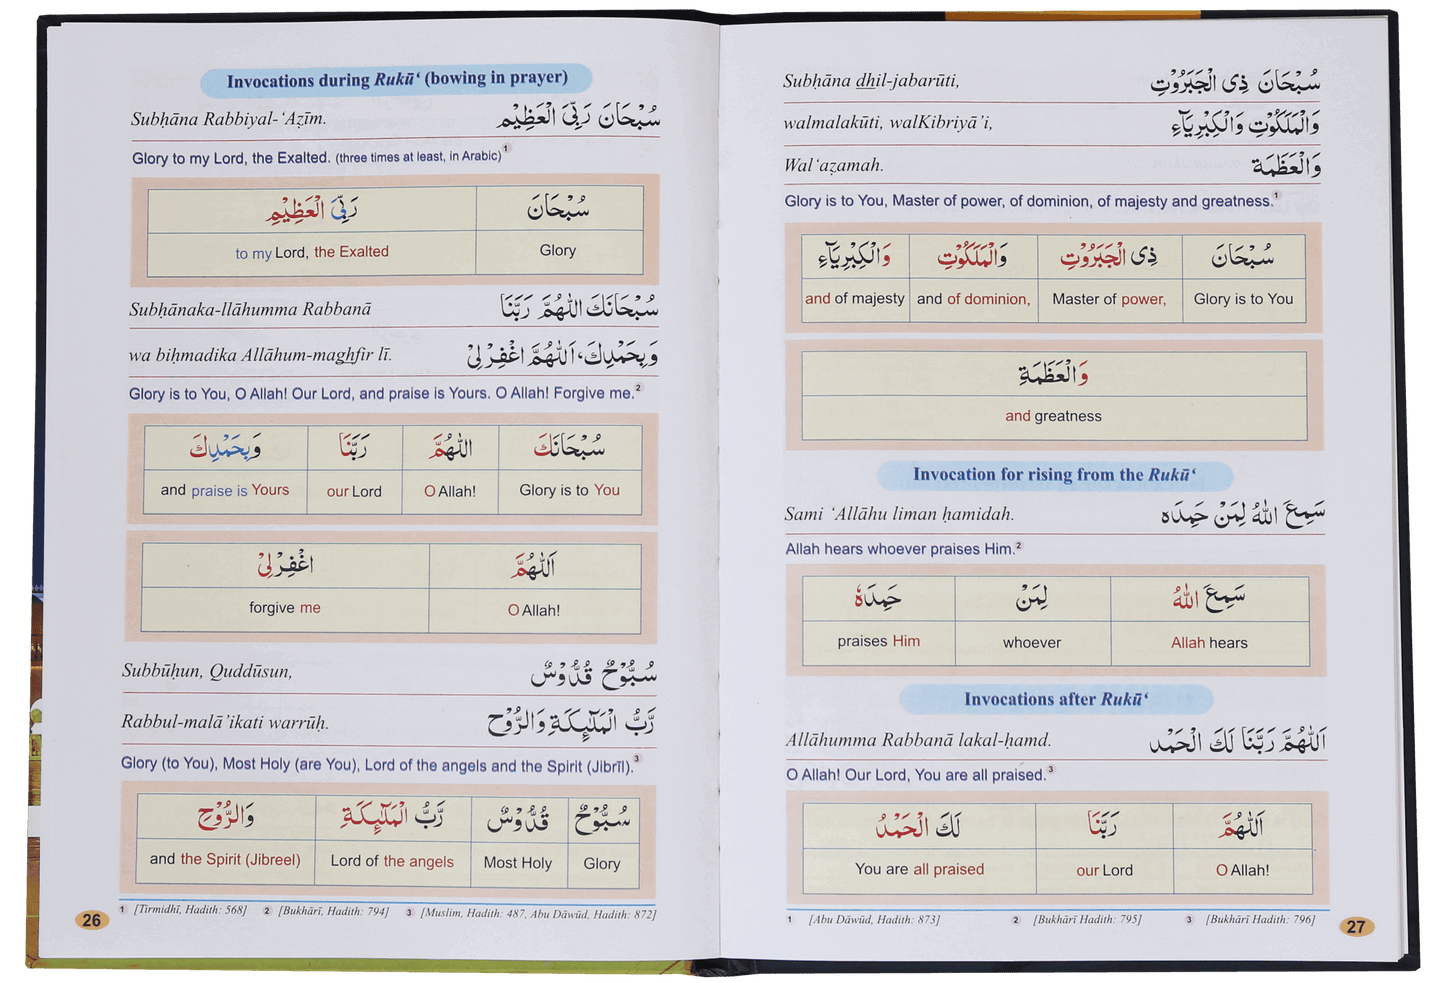 Invocations during Rukū‘ (bowing in prayer)
Subḥāna Rabbiyal-‘Aẓīm. سُبْحَانَ رَبِّىَ الْعَظِيْم
Glory to my Lord, the Exalted. (three times at least, in Arabic)1
رَبِّىَ الْعَظِيْمِ سُبْحَانَ
to my Lord, the Exalted Glory
Subḥānaka-llāhumma Rabbanā سُبْحَانَكَ اللّٰهُمَّ رَبَّنَا
wa biḥmadika Allāhum-maghfir lī. وَبِحَمْدِكَ، اَللّٰهُمَّ اغْفِرْ لِىْ
Glory is to You, O Allah! Our Lord, and praise is Yours. O Allah! Forgive me.2
وَبِحَمْدِكَ رَبَّنَا اللّٰهُمَّ سُبْحَانَكَ
and praise is Yours our Lord O Allah! Glory is to You
اغْفِرْلِىْ اَللّٰهُمَّ
forgive me O Allah!
Subbūḥun, Quddūsun, سُبُّوْحٌ قُدُّوْسٌ
Rabbul-malā’ikati warrūḥ. رَّبُّ الْمَلٰٓئِكَةِ وَالرُّوْح
Glory (to You), Most Holy (are You), Lord of the angels and the Spirit (Jibrīl).3
وَالرُّوْحِ رَّبُّ الْمَلٰٓئِكَةِ قُدُّوْسٌ سُبُّوْحٌ
and the Spirit (Jibreel) Lord of the angels Most Holy Glory
1 [Tirmidhī, Hadith: 568] 2 [Bukhārī, Hadith: 794] 3 [Muslim, Hadith: 487, Abu Dāwūd, Hadith: 872]
26
Subḥāna dhil-jabarūti, سُبْحَانَ ذِى الْجَبَرُوْتِ
walmalakūti, walKibriyā’i, وَالْمَلَكُوْتِ وَالْكِبْرِيَآءِ
Wal‘aẓamah. وَالْعَظَمَة
Glory is to You, Master of power, of dominion, of majesty and greatness.1
وَالْكِبْرِيَآءِ وَالْمَلَكُوْتِ ذِى الْجَبَرُوْتِ سُبْحَانَ
and of majesty and of dominion, Master of power, Glory is to You
وَالْعَظَمَةِ
and greatness
Invocation for rising from the Rukū‘
Sami ‘Allāhu liman ḥamidah. سَمِعَ اللهُ لِمَنْ حَمِدَه
Allah hears whoever praises Him.2
حَمِدَهٗ لِمَنْ سَمِعَ اللهُ
praises Him whoever Allah hears
Invocations after Rukū‘
Allāhumma Rabbanā lakal-ḥamd. اَللّٰهُمَّ رَبَّنَا لَكَ الْحَمْد
O Allah! Our Lord, You are all praised.3
لَكَ الْحَمْدُ رَبَّنَا اَللّٰهُمَّ
You are all praised our Lord O Allah!
1 [Abu Dāwūd, Hadith: 873] 2 [Bukhārī Hadith: 795] 3 [Bukhārī Hadith: 796]
27